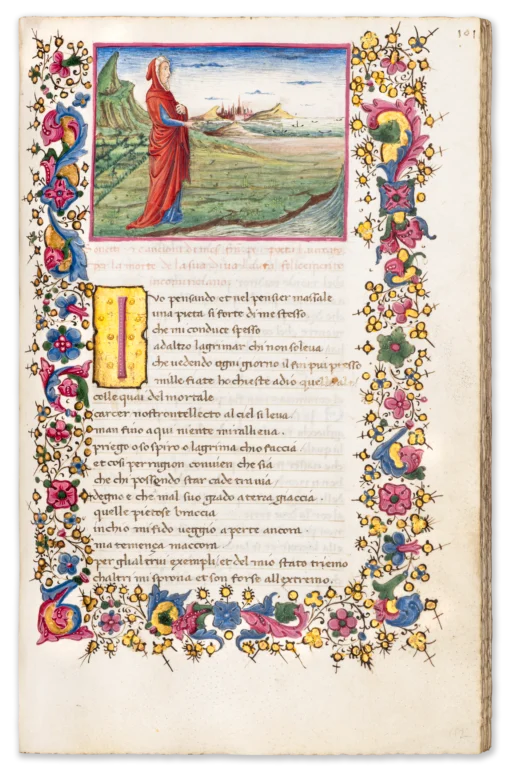 101
per la morte de la sua diva
I vo pensando et nel pensier massale
una pieta si forte di me stesso
che mi conduce spesso
adaltro lagrimar chi non soleva
che vedendo ogni giorno il fin piu presso
mille fiate ho chieste adio quelle ale
colle quai del mortale
carcer nostrontellecto al ciel si leva
man fino a qui niente mi
priego o sospiro o lagrima chio faccia
et cosi per ragion convien che sia
che chi possendo star cade tra via
degno e che mal suo grado a terra giaccia
quelle pietose braccia
inchio mi fido veggio aperte ancora
ma temenza maccora
per glialtrui exempli/ et del mio stato triemo
chaltri mi sprona et son forse all extremo.